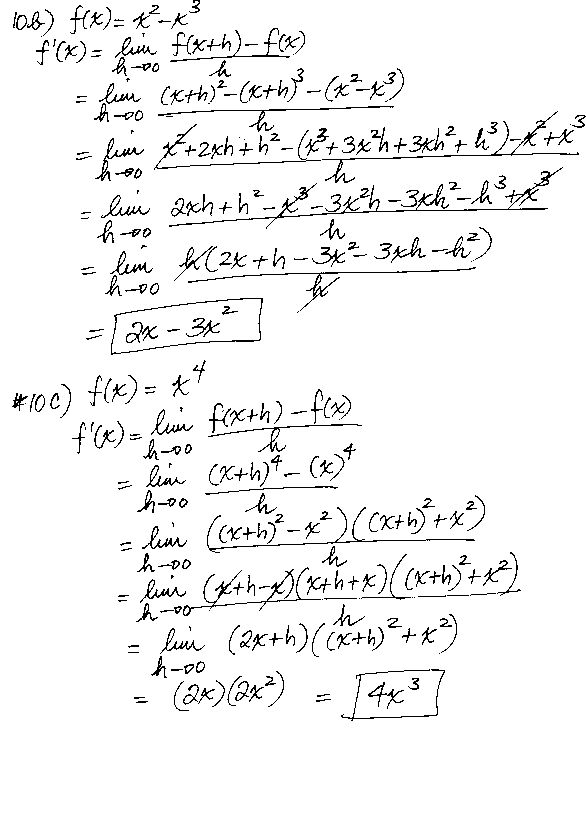 10b) f(x) = x² - x³
f'(x) = lim h→0 (f(x+h) - f(x))/h
= lim h→0 ((x+h)² - (x+h)³ - (x² - x³))/h
= lim h→0 (x² + 2xh + h² - (x³ + 3x²h + 3xh² + h³) - x² + x³)/h
= lim h→0 (2xh + h² - x³ - 3x²h - 3xh² - h³ + x³)/h
= lim h→0 h(2x + h - 3x² - 3xh - h²)/h
= 2x - 3x²
#10c) f(x) = x⁴
f'(x) = lim h→0 (f(x+h) - f(x))/h
= lim h→0 ((x+h)⁴ - (x)⁴)/h
= lim h→0 ((x+h)² - x²)((x+h)² + x²)/h
= lim h→0 (x+h-x)(x+h+x)((x+h)² + x²)/h
= lim h→0 (2x+h)((x+h)² + x²)
= (2x)(2x²) = 4x³